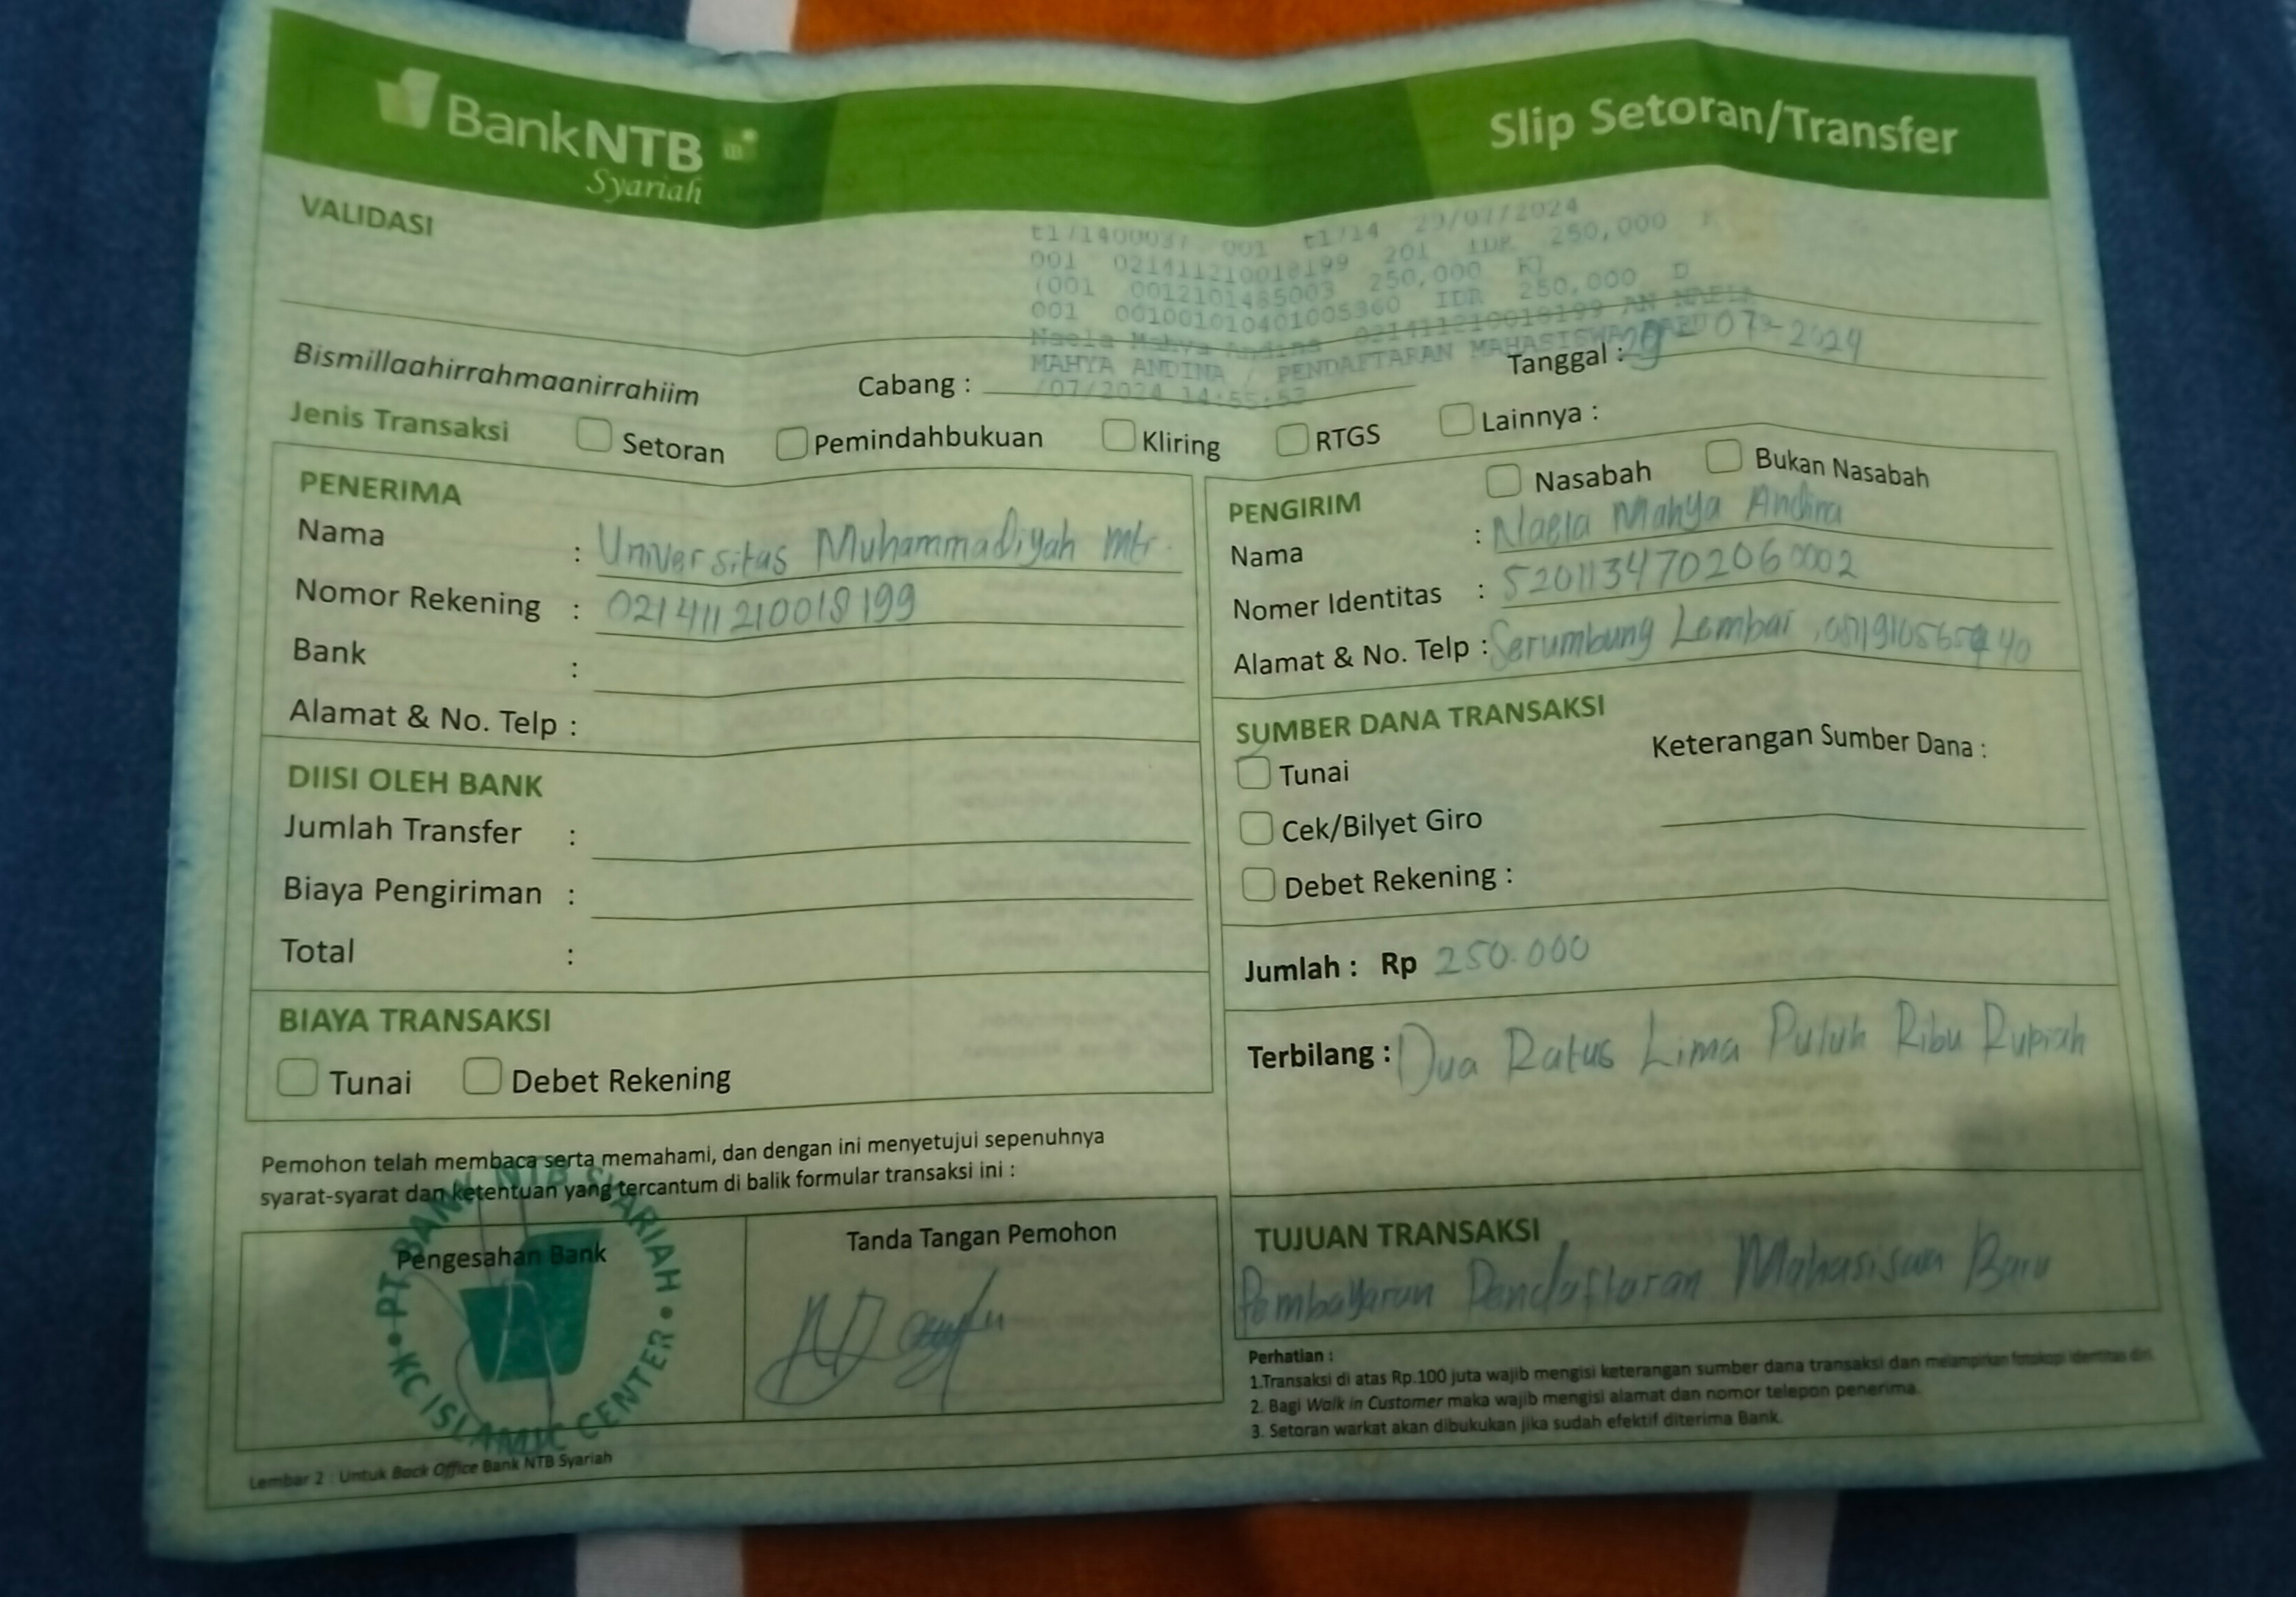 BankNTB
Syariah
Slip Setoran/Transfer
VALIDASI
29/07/2024
001 021411210018199 201 IDR 250,000
(001 0012101485003 250,000
001 001001010401005360 IDR 250,000 D
Naela Mahya Andina 021411210018199 AN NAELA
MAHYA ANDINA / PENDAFTARAN MAHASISWA BARU
/07/2024 14:55:57
Bismillaahirrahmaanirrahiim
Cabang :
Tanggal : 29-07-2024
Jenis Transaksi
Setoran
Pemindahbukuan
Kliring
RTGS
Lainnya :
PENERIMA
Nama : Universitas Muhammadiyah Mtr.
Nomor Rekening : 021411210018199
Bank :
Alamat & No. Telp :
DIISI OLEH BANK
Jumlah Transfer :
Biaya Pengiriman :
Total :
BIAYA TRANSAKSI
Tunai
Debet Rekening
Pemohon telah membaca serta memahami, dan dengan ini menyetujui sepenuhnya
syarat-syarat dan ketentuan yang tercantum di balik formular transaksi ini :
Pengesahan Bank
PT BANK NTB SYARIAH
KC ISLAMIC CENTER
Tanda Tangan Pemohon
Lembar 2 : Untuk Back Office Bank NTB Syariah
PENGIRIM
Nasabah
Bukan Nasabah
Nama : Naela Mahya Andina
Nomer Identitas : 5201134702060002
Alamat & No. Telp : Serumbung Lembar
SUMBER DANA TRANSAKSI
Tunai
Cek/Bilyet Giro
Debet Rekening :
Keterangan Sumber Dana :
Jumlah : Rp 250.000
Terbilang : Dua Ratus Lima Puluh Ribu Rupiah
TUJUAN TRANSAKSI
Pembayaran Pendaftaran Mahasiswa Baru
Perhatian :
1.Transaksi di atas Rp.100 juta wajib mengisi keterangan sumber dana transaksi dan melampirkan fotokopi identitas diri.
2. Bagi Walk in Customer maka wajib mengisi alamat dan nomor telepon penerima.
3. Setoran warkat akan dibukukan jika sudah efektif diterima Bank.